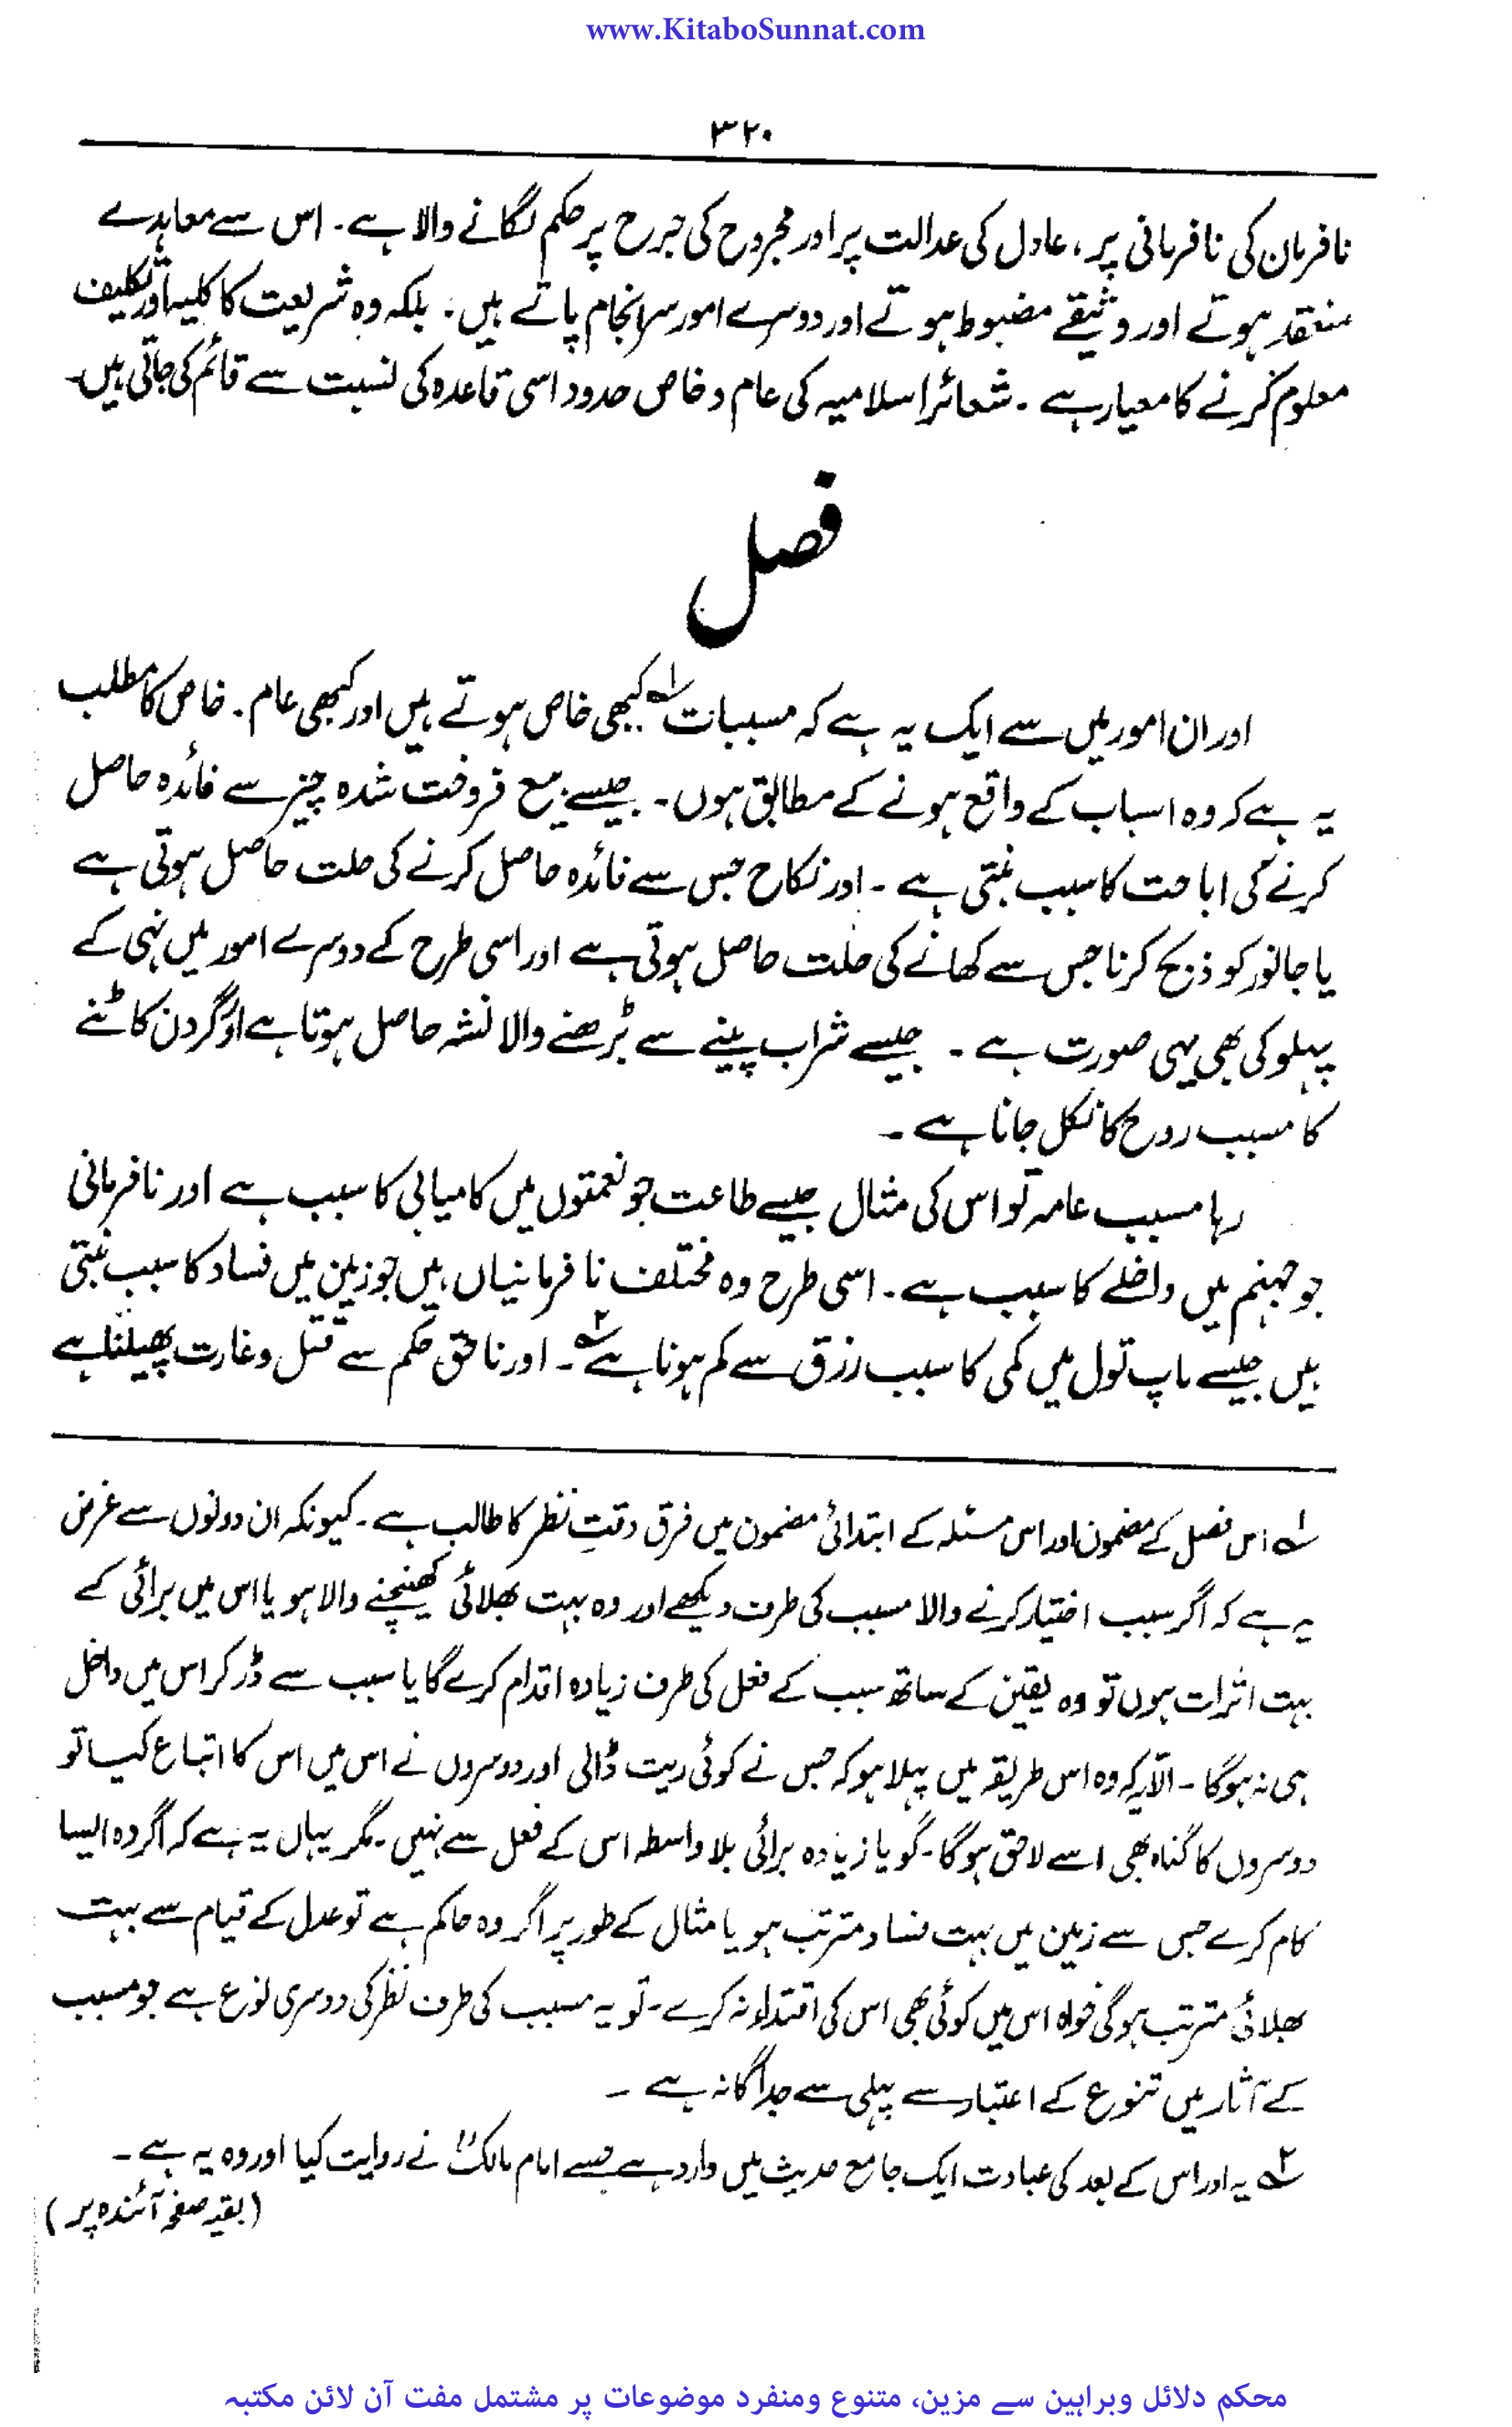 www.KitaboSunnat.com
۳۲۰
نافرمان کی نافرمانی پر، عادل کی عدالت پر اور مجروح کی جرح پر حکم لگانے والا ہے۔ اس سے معاہدے
منعقد ہوتے اور وثیقے مضبوط ہوتے اور دوسرے امور سرانجام پاتے ہیں۔ بلکہ وہ شریعت کا کلیہ اور تکلیف
معلوم کرنے کا معیار ہے۔ شعائر اسلامیہ کی عام و خاص حدود اسی قاعدہ کی نسبت سے قائم کی جاتی ہیں۔
فصل
اور ان امور میں سے ایک یہ ہے کہ مسببات ۱؎ کبھی خاص ہوتے ہیں اور کبھی عام۔ خاص کا مطلب
یہ ہے کہ وہ اسباب کے واقع ہونے کے مطابق ہوں۔ جیسے بیع فروخت شدہ چیز سے فائدہ حاصل
کرنے کی اباحت کا سبب بنتی ہے۔ اور نکاح جس سے فائدہ حاصل کرنے کی حلت حاصل ہوتی ہے
یا جانور کو ذبح کرنا جس سے کھانے کی حلت حاصل ہوتی ہے اور اسی طرح کے دوسرے امور میں نہی کے
پہلو کی بھی یہی صورت ہے۔ جیسے شراب پینے سے بڑھنے والا نشہ حاصل ہوتا ہے اور گردن کاٹنے
کا مسبب روح کا نکل جانا ہے۔
رہا مسبب عامہ تو اس کی مثال جیسے طاعت جو نعمتوں میں کامیابی کا سبب ہے اور نافرمانی
جو جہنم میں داخلے کا سبب ہے۔ اسی طرح وہ مختلف نافرمانیاں ہیں جو زمین میں فساد کا سبب بنتی
ہیں جیسے ماپ تول میں کمی کا سبب رزق سے کم ہونا ہے ۲؎۔ اور ناحق حکم سے قتل و غارت پھیلتا ہے
۱؎ اس فصل کے مضمون اور اس مسئلہ کے ابتدائی مضمون میں فرق دقتِ نظر کا طالب ہے۔ کیونکہ ان دونوں سے غرض
یہ ہے کہ اگر سبب اختیار کرنے والا مسبب کی طرف دیکھے اور وہ بہت بھلائی کھینچنے والا ہو یا اس میں برائی کے
بہت اثرات ہوں تو وہ یقین کے ساتھ سبب کے فعل کی طرف زیادہ اقدام کرے گا یا سبب سے ڈر کر اس میں داخل
ہی نہ ہوگا۔ الّا یہ کہ وہ اس طریقہ میں پہلا ہو کہ جس نے کوئی ریت ڈالی اور دوسروں نے اس میں اس کا اتباع کیا تو
دوسروں کا گناہ بھی اسے لاحق ہوگا۔ گویا زیادہ برائی بلاواسطہ اس کے فعل سے نہیں۔ مگر یہاں یہ ہے کہ اگر وہ ایسا
کام کرے جس سے زمین میں بہت فساد مترتب ہو یا مثال کے طور پر اگر وہ حاکم ہے تو عدل کے قیام سے بہت
بھلائی مترتب ہوگی خواہ اس میں کوئی بھی اس کی اقتداء نہ کرے۔ تو یہ مسبب کی طرف نظر کی دوسری نوع ہے جو مسبب
کے آثار میں تنوع کے اعتبار سے پہلی سے جداگانہ ہے۔
۲؎ یہ اور اس کے بعد کی عبادت ایک جامع حدیث میں وارد ہے جسے امام مالکؒ نے روایت کیا اور وہ یہ ہے۔
(بقیہ صفحہ آئندہ پر)
محکم دلائل وبراہین سے مزین، متنوع ومنفرد موضوعات پر مشتمل مفت آن لائن مکتبہ